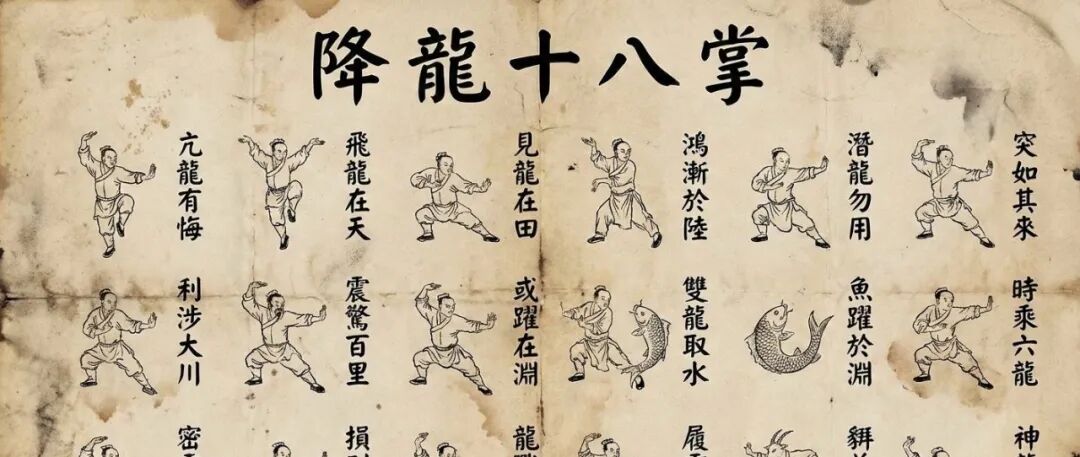 降龍十八掌
亢龍有悔
飛龍在天
見龍在田
鴻漸於陸
潛龍勿用
突如其來
利涉大川
震驚百里
或躍在淵
雙龍取水
魚躍於淵
時乘六龍
密
損
龍
履
神